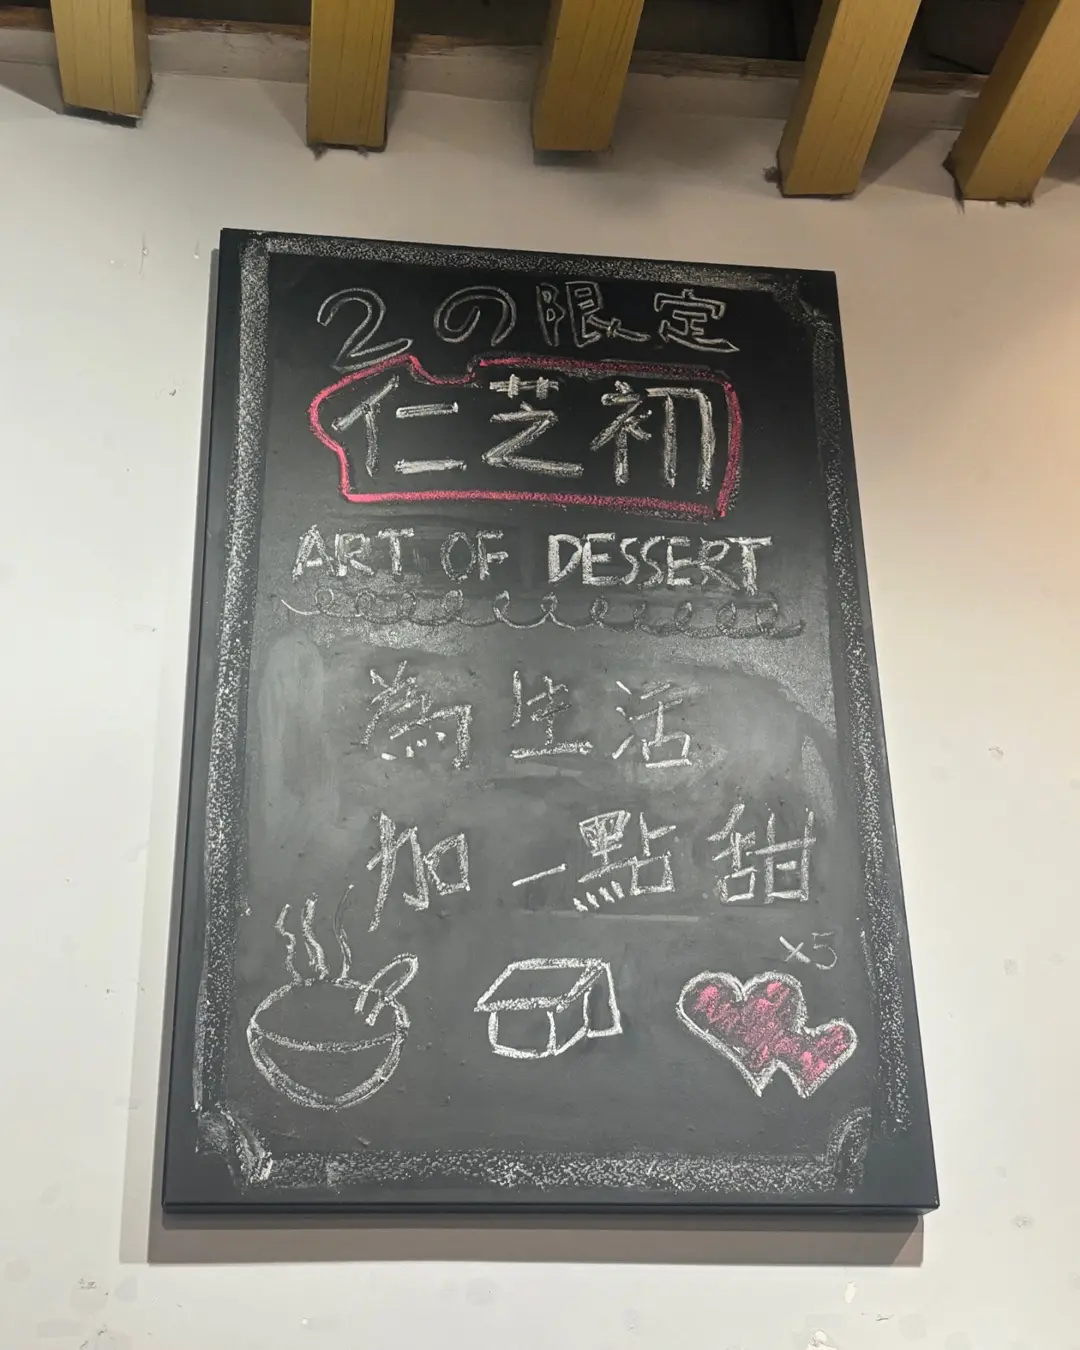 2の限定
仁芝初
ART OF DESSERT
為生活
加一點甜
x5